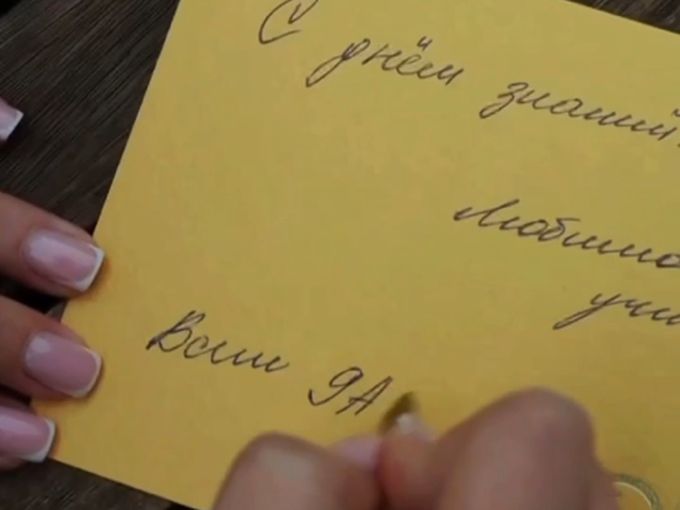 С днём знаний
Любимо
учи
Ваш 9А